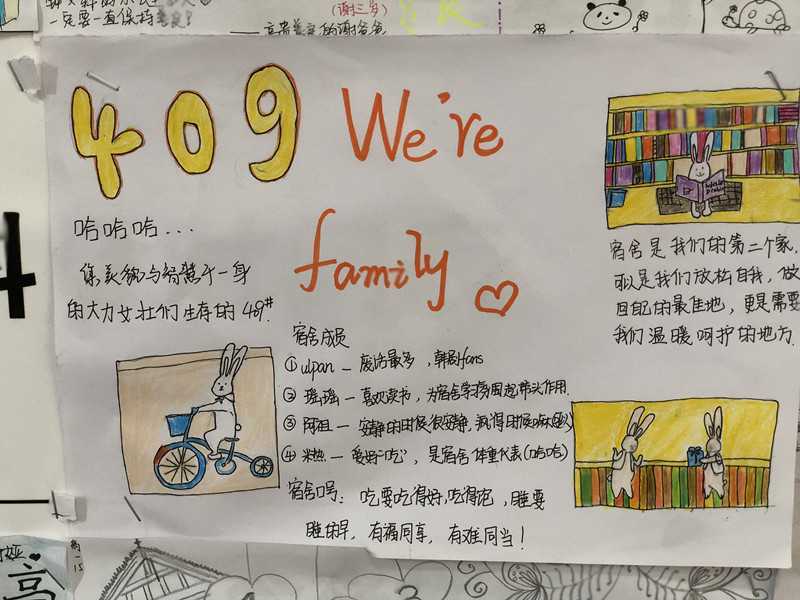 一定要一直保持
(谢三岁)
的谢爸爸
409 We're
family
哈哈哈...
集美貌与智慧于一身
的大力女壮们生存的 409#.
宿舍是我们的第二个家,
可以是我们放松自我，做
回自己的最佳地，更是需要
我们温暖呵护的地方.
宿舍成员
① ulpan — 废话最多，韩剧fans
② 瑶瑶 — 喜欢读书，为宿舍学习氛围起带头作用.
③ 阿祖 — 安静的时候很安静，
④ 米热 — 爱好"吃"，是宿舍体重代表(哈哈)
宿舍口号：吃要吃得好,吃得饱，睡要
睡的早，有福同享，有难同当！